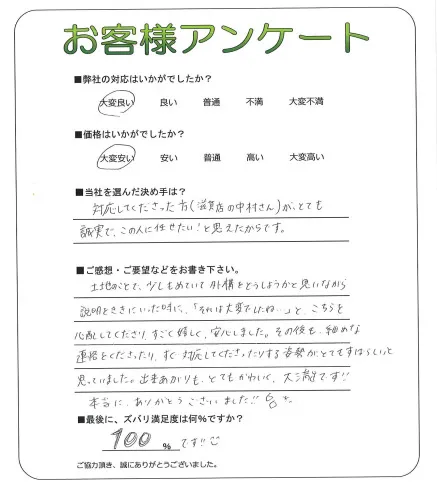 お客様アンケート
■弊社の対応はいかがでしたか?
大変良い 良い 普通 不満 大変不満
■価格はいかがでしたか?
大変安い 安い 普通 高い 大変高い
■当社を選んだ決め手は?
対応してくださった方(滋賀店の中村さん)が、とても
誠実で、この人に任せたい!と思えたからです。
■ご感想・ご要望などをお書き下さい。
土地のことで、少しもめていて外構をどうしようかと思いながら
説明をききにいった時に、「それは大変でしたね…」と、こちらを
心配してくださり、すごく嬉しく、安心しました。その後も、細めな
連絡をくださったり、すぐ対応してくださったりする姿勢が、とてもすばらしいと
思っていました。出来あがりも、とてもかわいく、大満足です!!
本当に、ありがとうございました!!
■最後に、ズバリ満足度は何%ですか?
100 % です!!
ご協力頂き、誠にありがとうございました。